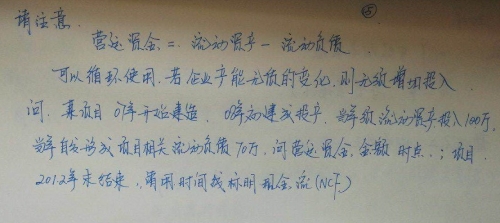 请注意. ⑤
营运资金 = 流动资产 - 流动负债
可以循环使用.若企业产能无质的变化,则无须增加投入
问.某项目 07年开始建造. 08年初建成投产.当年须流动资产投入100万,
当年自发形成项目相关流动负债70万.问营运资金.金额 时点.;项目
2012年末结束.请用时间找标明现金流(NCF.)